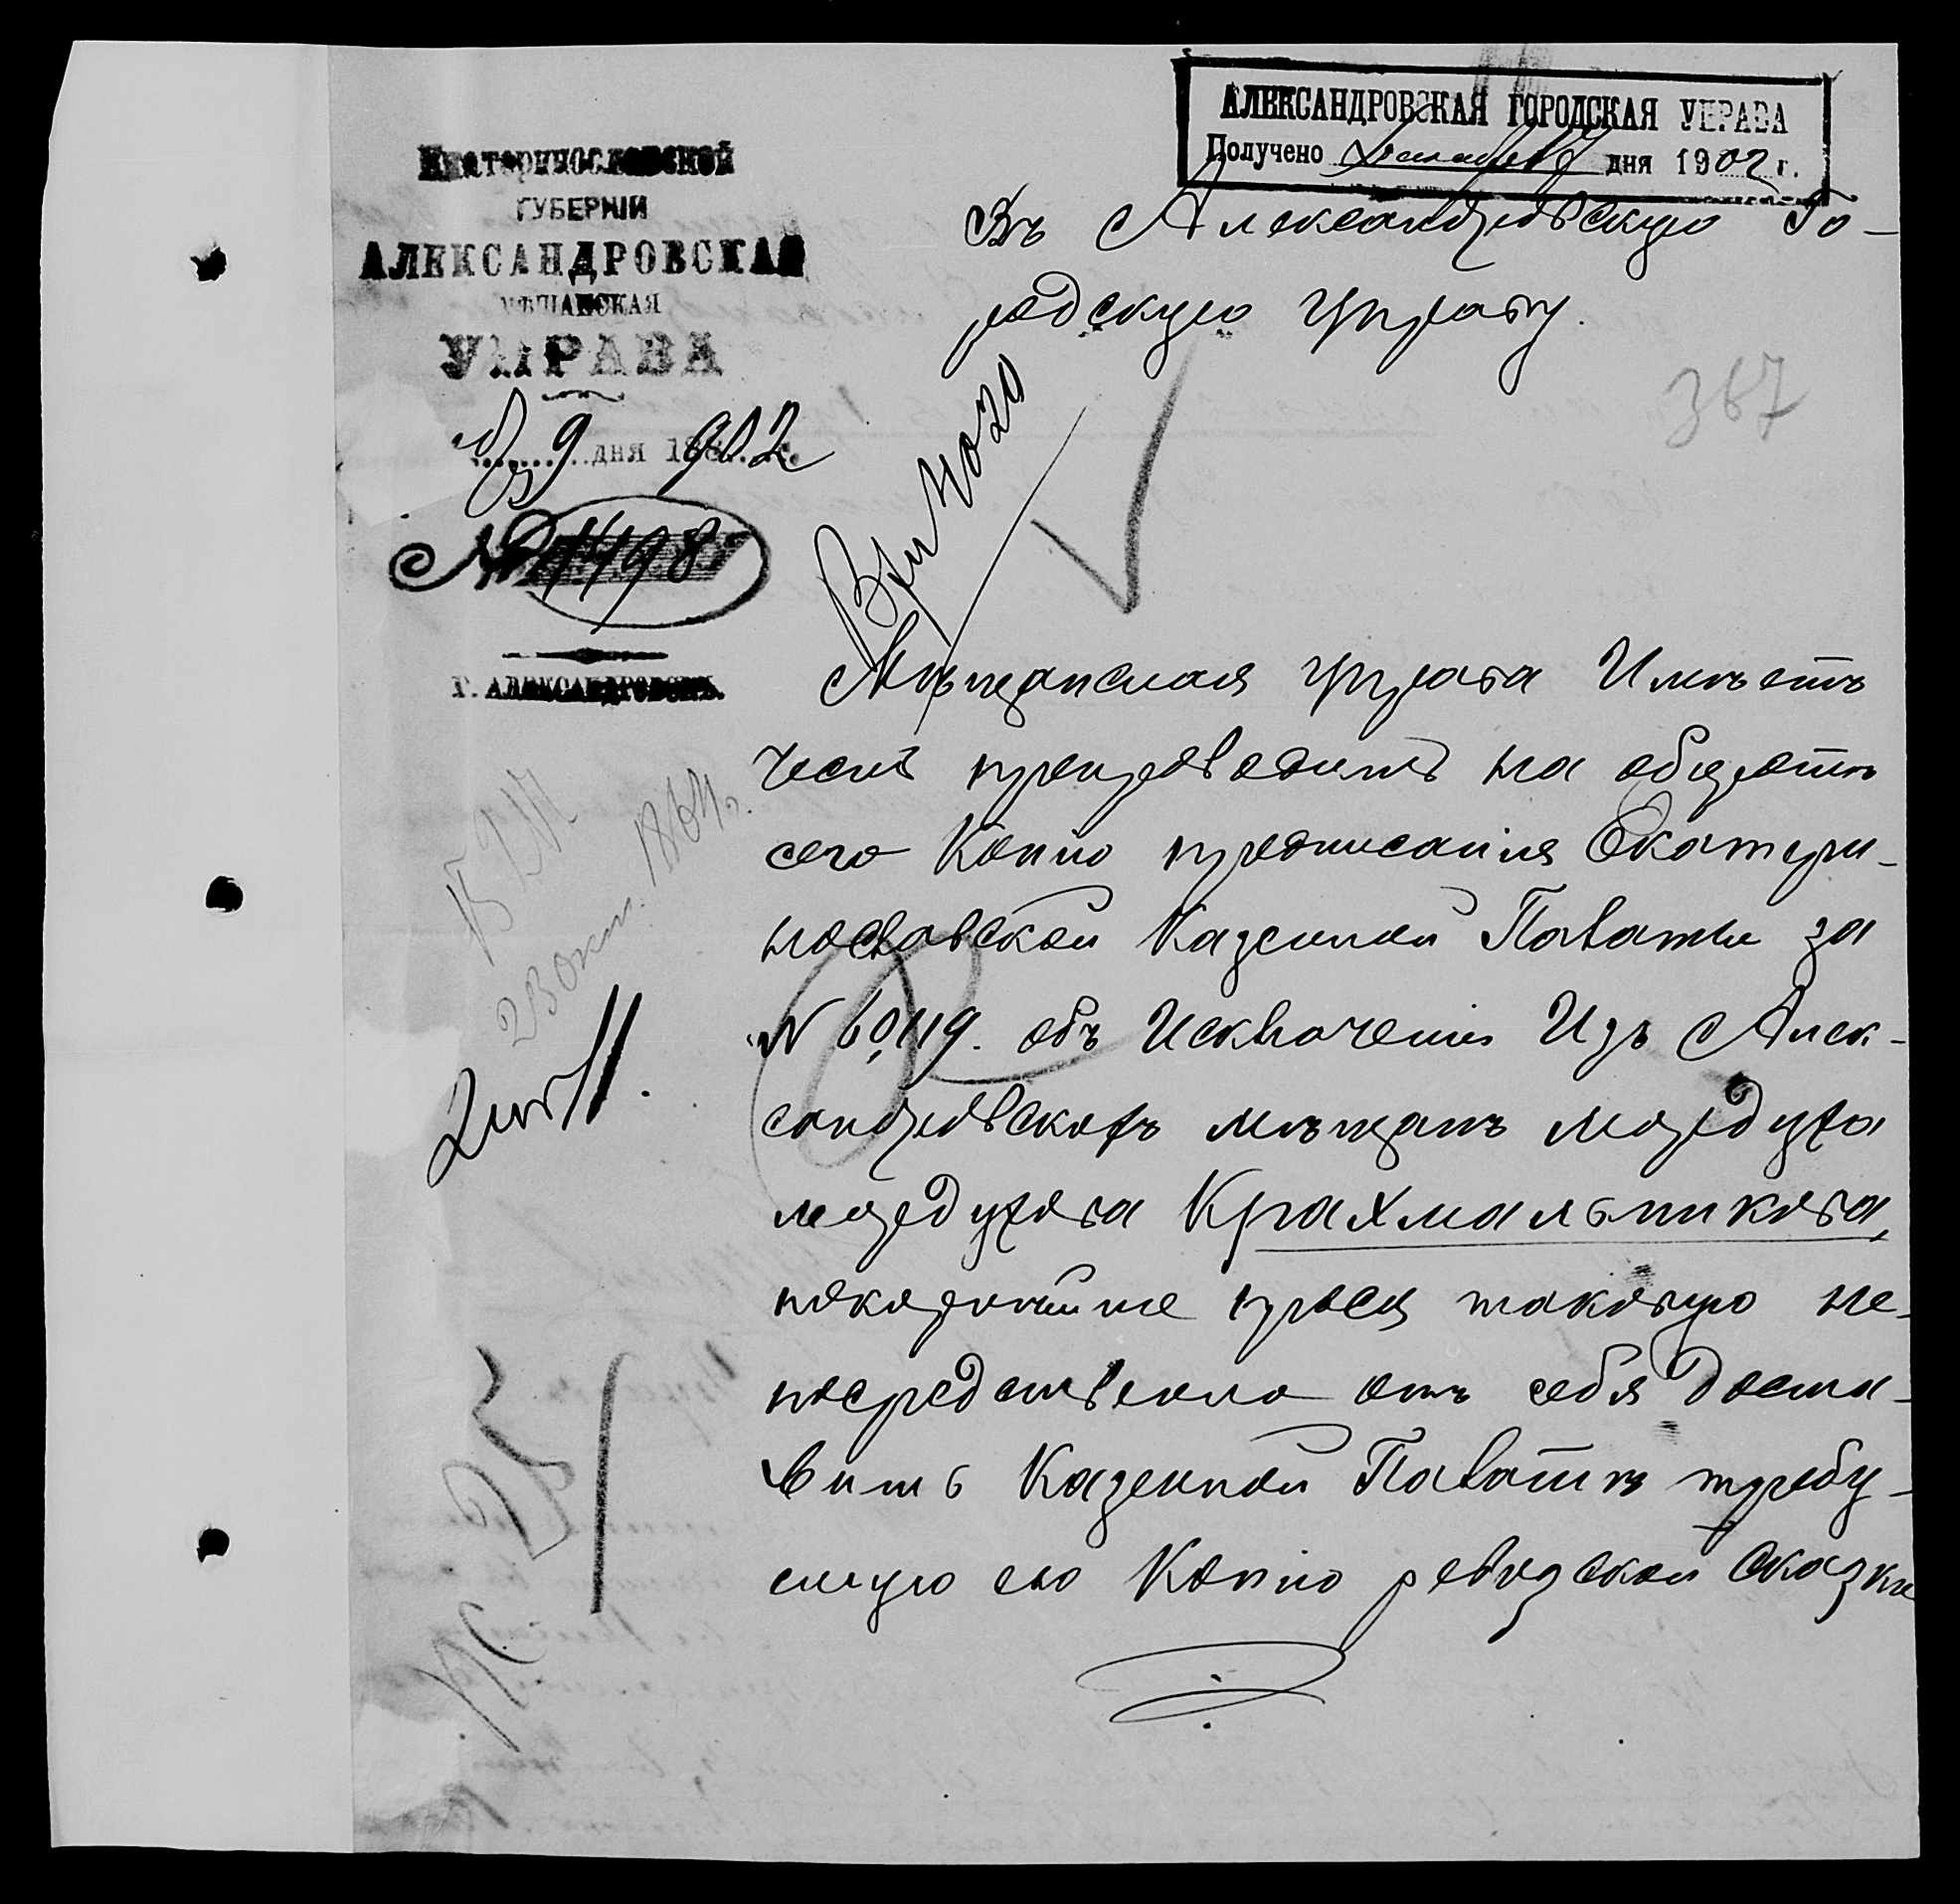 АЛЕКСАНДРОВСКАЯ ГОРОДСКАЯ УПРАВА
Получено дня 1902 г.
Екатеринославской
ГУБЕРНІИ
АЛЕКСАНДРОВСКАЯ
МѢЩАНСКАЯ
УПРАВА
9 дня 188 902
№ 1498
Г. АЛЕКСАНДРОВСКЪ.
Въ Александровскую Го-
родскую Управу.
367
Мѣщанская управа Имѣетъ
честь препроводить на оборотѣ
сего Копію предписанія Екатери-
нославской Казенной Палаты за
№ 60119. объ Исключеніи Изъ Алек-
сандровскихъ мѣщанъ Мордуха
Мордухова Крахмальникова,
покорнѣйше прося таковую не-
посредственно отъ себя доста-
вить Казенной Палатѣ требу-
емую ею Копію ревизской сказки
23 окт. 1864 г.